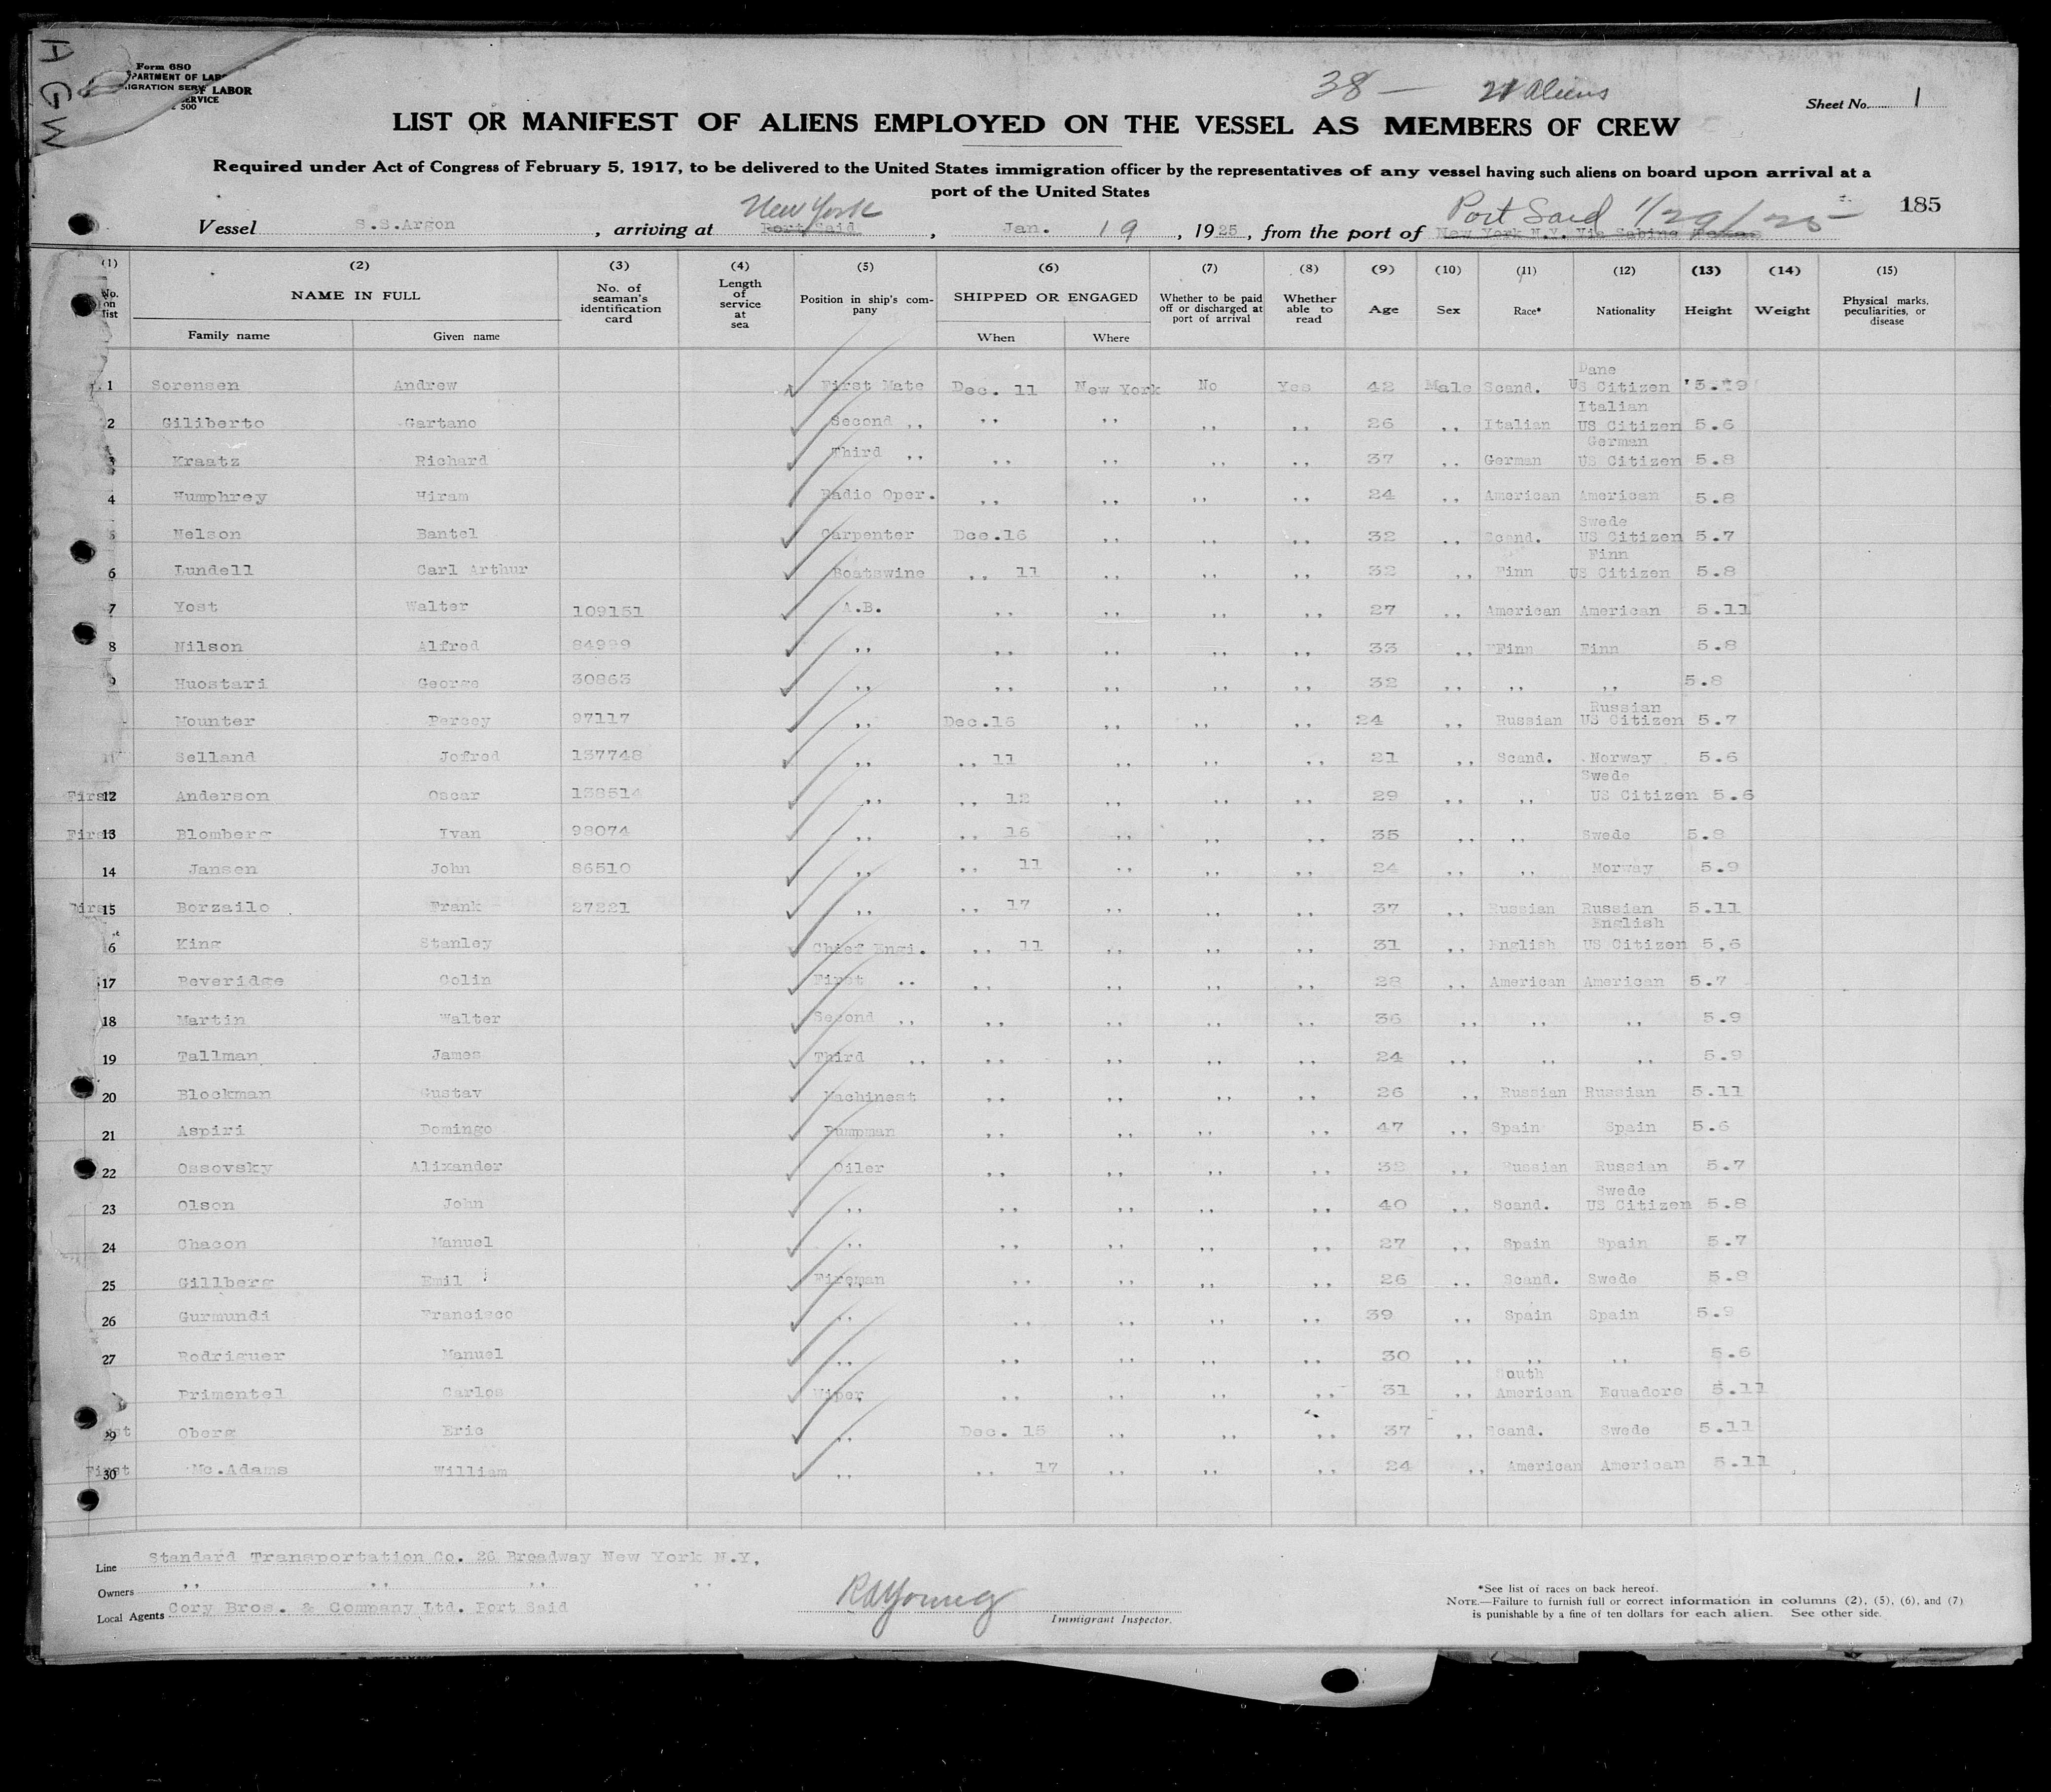 AGW
Form 680
PARTMENT OF LABOR
MIGRATION SERVICE
OF LABOR
ERVICE
500
38 — 21 Aliens
Sheet No. 1
LIST OR MANIFEST OF ALIENS EMPLOYED ON THE VESSEL AS MEMBERS OF CREW
Required under Act of Congress of February 5, 1917, to be delivered to the United States immigration officer by the representatives of any vessel having such aliens on board upon arrival at a
port of the United States
185
New York Port Said 1/29/25
Vessel S.S.Argon, arriving at Port Said, Jan. 19, 1925, from the port of New York N.Y. Via Sabine Texas
(1) (2) (3) (4) (5) (6) (7) (8) (9) (10) (11) (12) (13) (14) (15)
No. on list NAME IN FULL Family name Given name No. of seaman's identification card Length of service at sea Position in ship's company SHIPPED OR ENGAGED When Where Whether to be paid off or discharged at port of arrival Whether able to read Age Sex Race* Nationality Height Weight Physical marks, peculiarities, or disease
1 Sorensen Andrew First Mate Dec. 11 New York No Yes 42 Male Scand. Dane US Citizen
2 Giliberto Gartano Second ,, ,, ,, ,, ,, 26 ,, Italian Italian US Citizen 5.6
3 Kraatz Richard Third ,, ,, ,, ,, ,, 37 ,, German German US Citizen 5.8
4 Humphrey Hiram Radio Oper. ,, ,, ,, ,, 24 ,, American American 5.8
5 Nelson Bantel Carpenter Dec.16 ,, ,, ,, 32 ,, Scand. Swede US Citizen 5.7
6 Lundell Carl Arthur Boatswine ,, 11 ,, ,, ,, 32 ,, Finn Finn US Citizen 5.8
7 Yost Walter 109151 A.B. ,, ,, ,, ,, 27 ,, American American 5.11
8 Nilson Alfred 84999 ,, ,, ,, ,, ,, 33 ,, Finn Finn 5.8
9 Huostari George 30863 ,, ,, ,, ,, ,, 32 ,, ,, ,, 5.8
Mounter Percey 97117 ,, Dec.16 ,, ,, ,, 24 ,, Russian Russian US Citizen 5.7
11 Selland Jofred 137748 ,, ,, 11 ,, ,, ,, 21 ,, Scand. Norway 5.6
First 12 Anderson Oscar 138514 ,, ,, 12 ,, ,, ,, 29 ,, ,, Swede US Citizen 5.6
First 13 Blomberg Ivan 98074 ,, ,, 16 ,, ,, ,, 35 ,, ,, Swede 5.8
14 Jansen John 86510 ,, ,, 11 ,, ,, ,, 24 ,, ,, Norway 5.9
First 15 Borzailo Frank 27221 ,, ,, 17 ,, ,, ,, 37 ,, Russian Russian 5.11
6 King Stanley Chief Engi. ,, 11 ,, ,, ,, 31 ,, English English US Citizen 5,6
17 Beveridge Colin First ,, ,, ,, ,, ,, 28 ,, American American 5.7
18 Martin Walter Second ,, ,, ,, ,, ,, 36 ,, ,, ,, 5.9
19 Tallman James Third ,, ,, ,, ,, ,, 24 ,, ,, ,, 5.9
20 Blockman Gustav Machinest ,, ,, ,, ,, 26 ,, Russian Russian 5.11
21 Aspiri Domingo Pumpman ,, ,, ,, ,, 47 ,, Spain Spain 5.6
22 Ossovsky Alixander Oiler ,, ,, ,, ,, 38 ,, Russian Russian 5.7
23 Olson John ,, ,, ,, ,, ,, 40 ,, Scand. Swede US Citizen 5.8
24 Chacon Manuel ,, ,, ,, ,, ,, 27 ,, Spain Spain 5.7
25 Gillberg Emil Fireman ,, ,, ,, ,, 26 ,, Scand. Swede 5.8
26 Gurmundi Francisco ,, ,, ,, ,, ,, 39 ,, Spain Spain 5.9
27 Rodriguer Manuel ,, ,, ,, ,, ,, 30 ,, ,, ,, 5.6
Primentel Carlos Wiper ,, ,, ,, ,, 31 ,, South American Equadore 5.11
29 Oberg Eric ,, Dec. 15 ,, ,, ,, 37 ,, Scand. Swede 5.11
First 30 Mc.Adams William ,, ,, 17 ,, ,, ,, 24 ,, American American 5.11
Line Standard Transportation Co. 26 Broadway New York N.Y,
Owners ,, ,, ,, ,,
Local Agents Cory Bros. & Company Ltd. Port Said
RAYoung
Immigrant Inspector.
*See list of races on back hereof.
NOTE.—Failure to furnish full or correct information in columns (2), (5), (6), and (7)
is punishable by a fine of ten dollars for each alien. See other side.